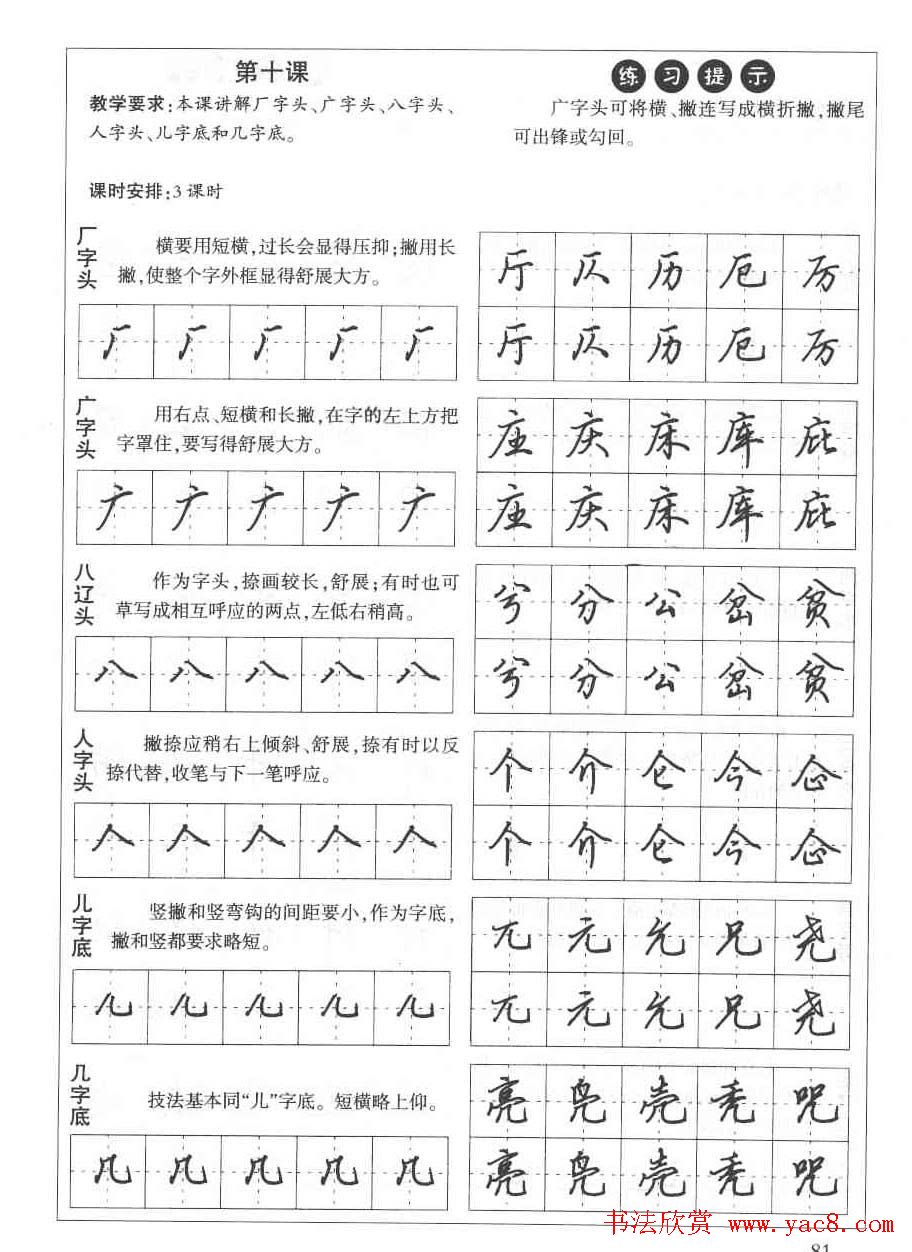 第十课
教学要求:本课讲解厂字头、广字头、八字头、
人字头、儿字底和几字底。
课时安排:3课时
练习提示
广字头可将横、撇连写成横折撇,撇尾
可出锋或勾回。
厂字头
横要用短横,过长会显得压抑;撇用长
撇,使整个字外框显得舒展大方。
厂厂厂厂厂
厅仄历厄厉
厅仄历厄厉
广字头
用右点、短横和长撇,在字的左上方把
字罩住,要写得舒展大方。
广广广广广
庄庆床库庇
庄庆床库庇
八辽头
作为字头,捺画较长,舒展;有时也可
草写成相互呼应的两点,左低右稍高。
八八八八八
兮分公岔贫
兮分公岔贫
人字头
撇捺应稍右上倾斜、舒展,捺有时以反
捺代替,收笔与下一笔呼应。
人人人人人
个介仑今怂
个介仑今
儿字底
竖撇和竖弯钩的间距要小,作为字底,
撇和竖都要求略短。
儿儿儿儿儿
兀元允兄尧
兀元允兄尧
几字底
技法基本同“儿”字底。短横略上仰。
几几几几几
亮凫壳秃咒
亮凫壳秃咒
书法欣赏 www.yac8.com
81